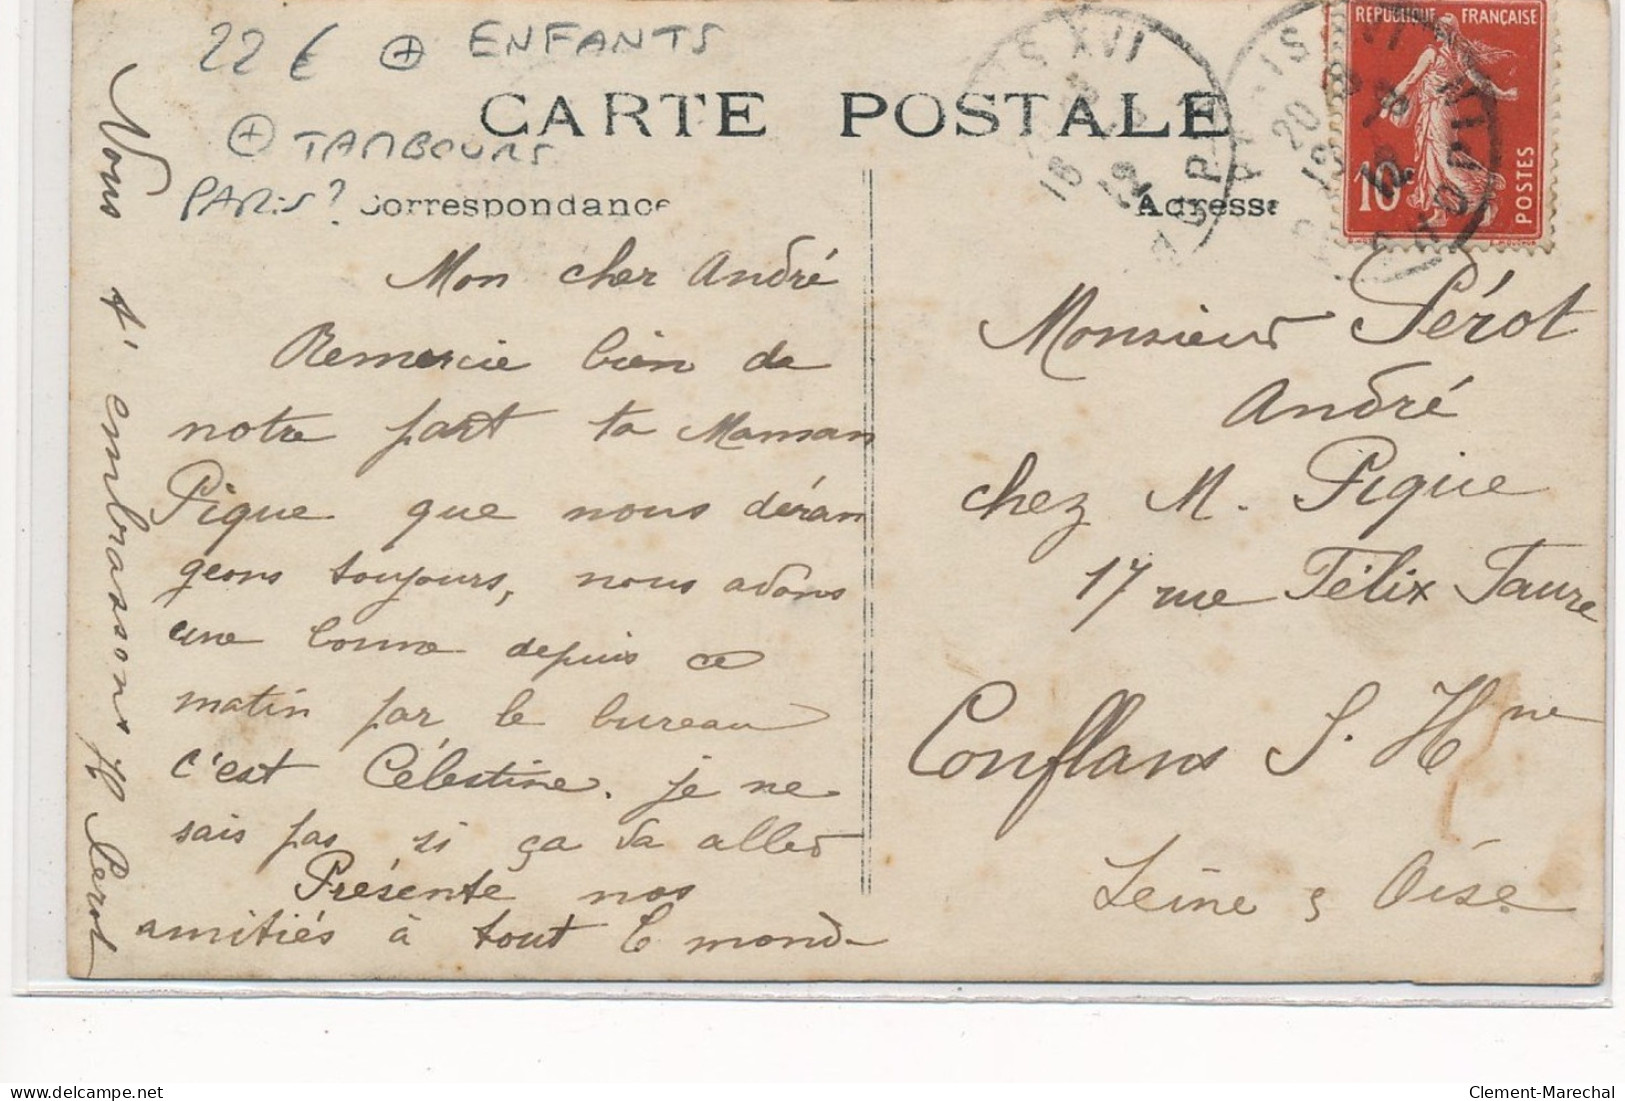 22 € + ENFANTS
+ TAMBOURS
PARIS ?
CARTE POSTALE
Correspondance
Adresse
RÉPUBLIQUE FRANÇAISE
10
POSTES
PARIS XVI
Mon cher André
Remercie bien de
notre part ta Maman
Pique que nous déran
geons toujours, nous avons
une bonne depuis ce
matin par le bureau
c'est Célestine. je ne
sais pas si ça va aller
Présente nos
amitiés à tout le monde
Nous t'embrassons H Perot
Monsieur Pérot
André
chez M. Pique
17 rue Félix Faure
Conflans S. Hne
Seine & Oise
Clement-Marechal